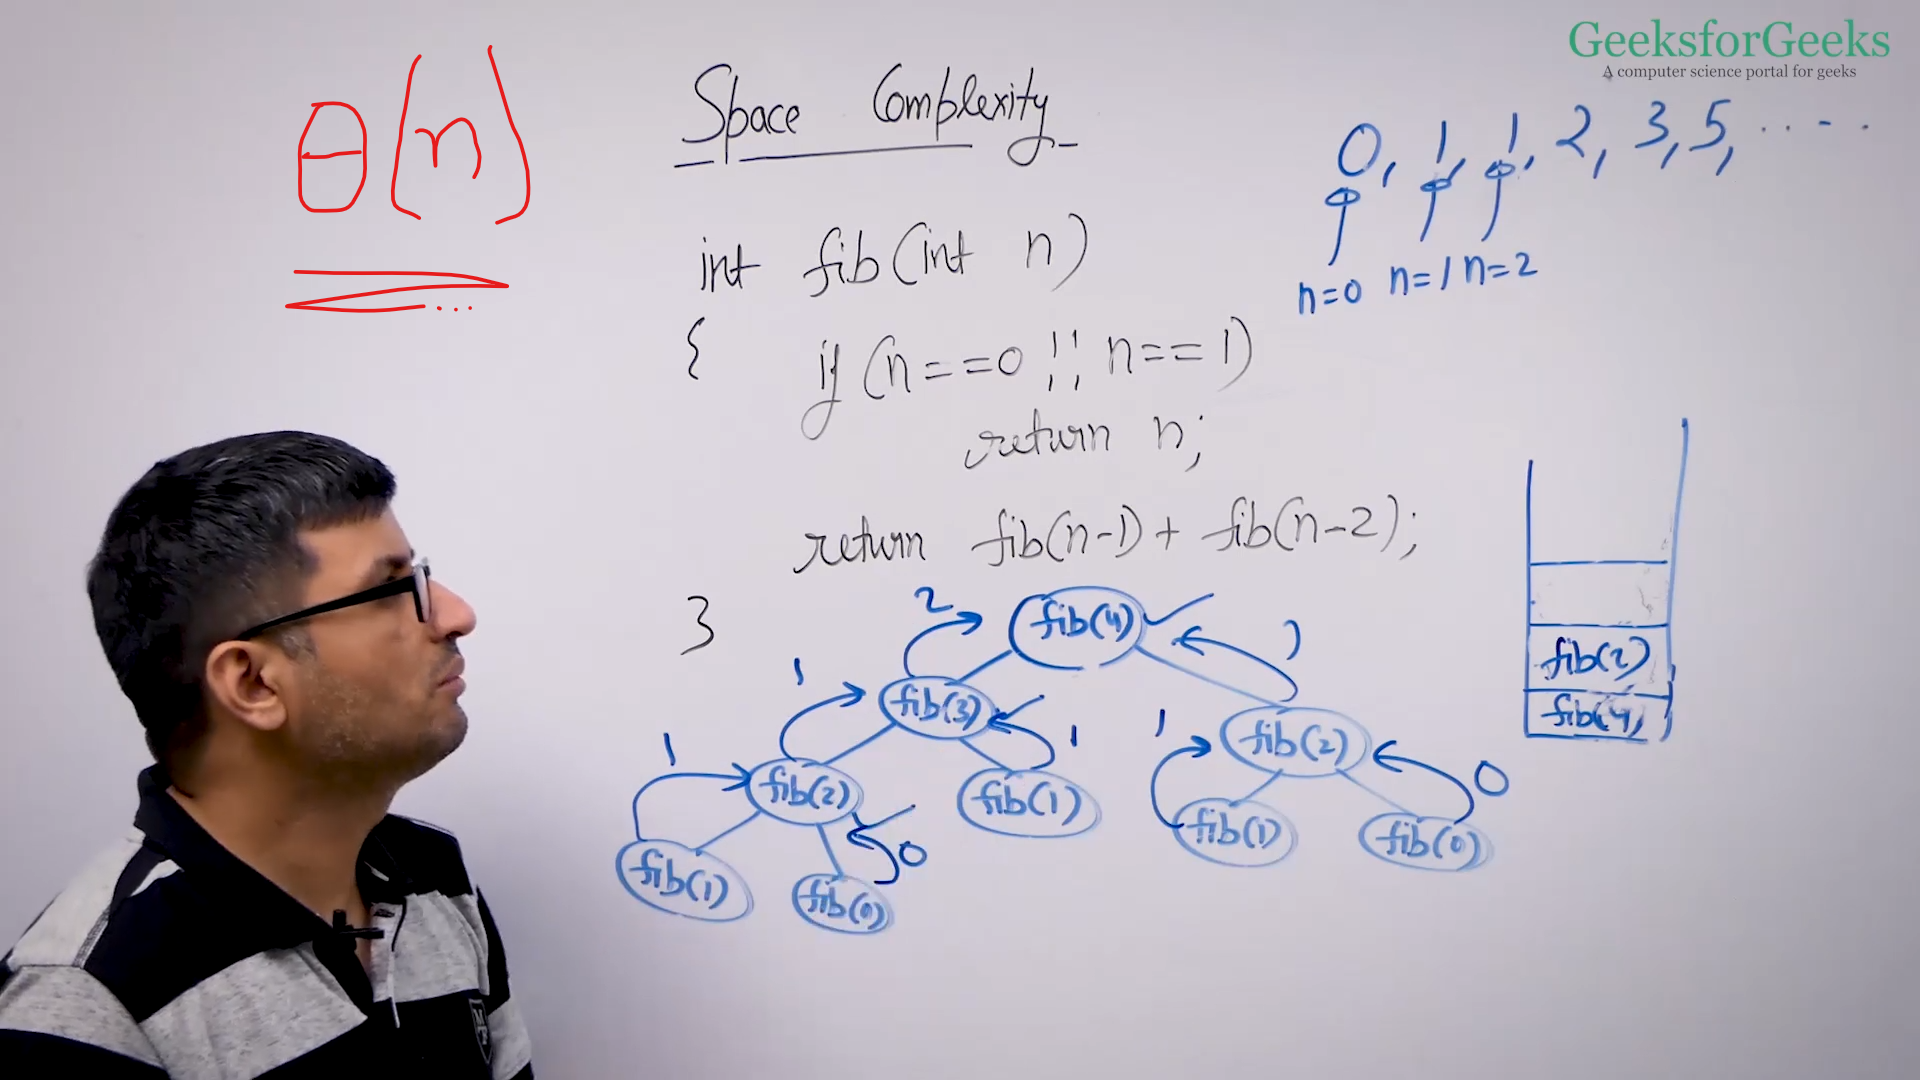 GeeksforGeeks
A computer science portal for geeks
θ(n)
Space Complexity
0, 1, 1, 2, 3, 5, .....
n=0 n=1 n=2
int fib(int n)
{ if (n==0 || n==1)
return n;
return fib(n-1) + fib(n-2);
}
2 fib(4) 1
1 fib(3) 1
1 fib(2) fib(1)
0
fib(1) fib(0)
1 fib(2) 0
fib(1) fib(0)
fib(2)
fib(4)